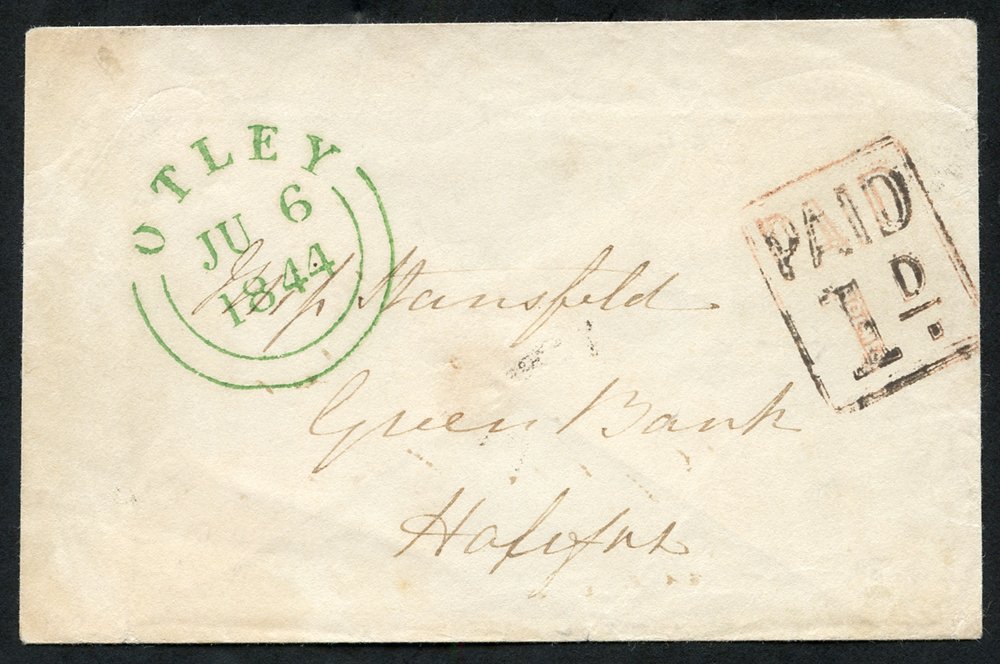 OTLEY
JU 6
1844
Miss Stansfeld
Green Bank
Halifax
PAID
1D.